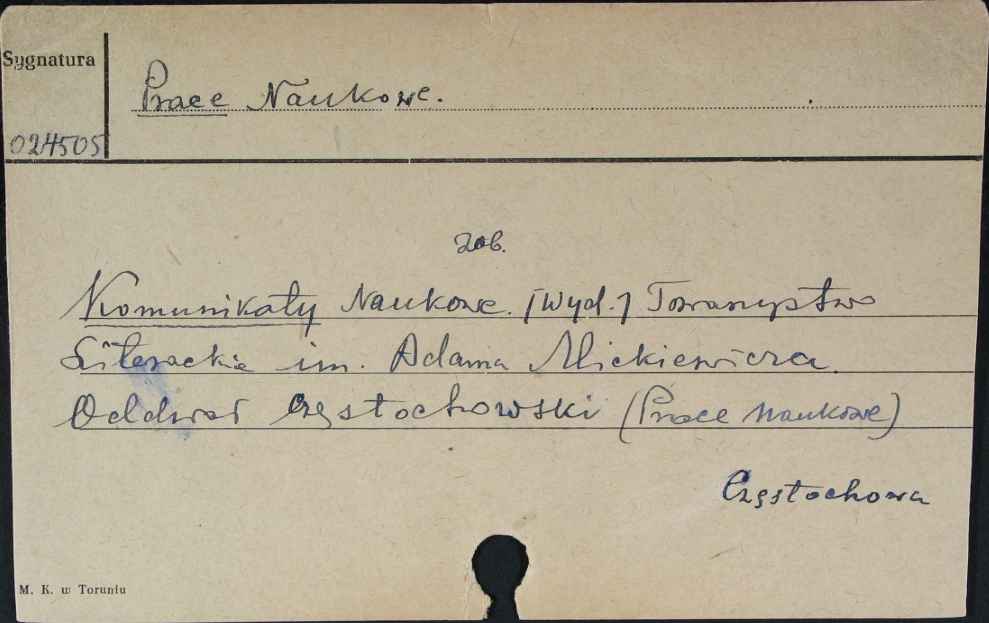 Sygnatura
Prace Naukowe.
024505
zob.
Komunikaty Naukowe. [Wyd.] Towarzystwo
Literackie im. Adama Mickiewicza.
Oddział Częstochowski (Prace Naukowe)
Częstochowa
M. K. w Toruniu